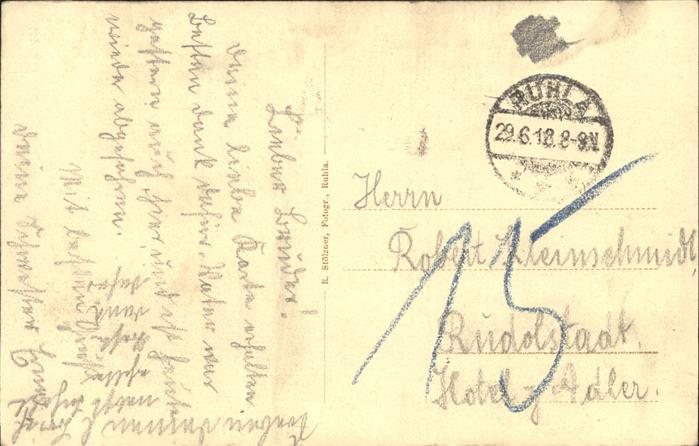 Lieber Bruder!
Deine liebe Karte erhalten
besten Dank dafür. Vater war
gestern auch hier und ist heute
wieder abgefahren.
Mit besten Grüßen
Deine Schwester
R. Stölzner, Fotogr., Ruhla.
RUHLA
29.6.18.8-9N.
Herrn
Robert Kleinschmidt
Rudolstadt.
Hotel z. Adler.
15